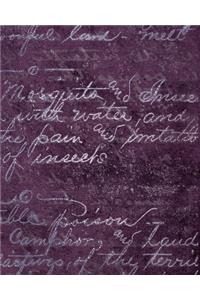 land - melt
Mosquito and
with water, and
the pain and irritatio
of insects
poison
Camphor, and Laud
of the terrib